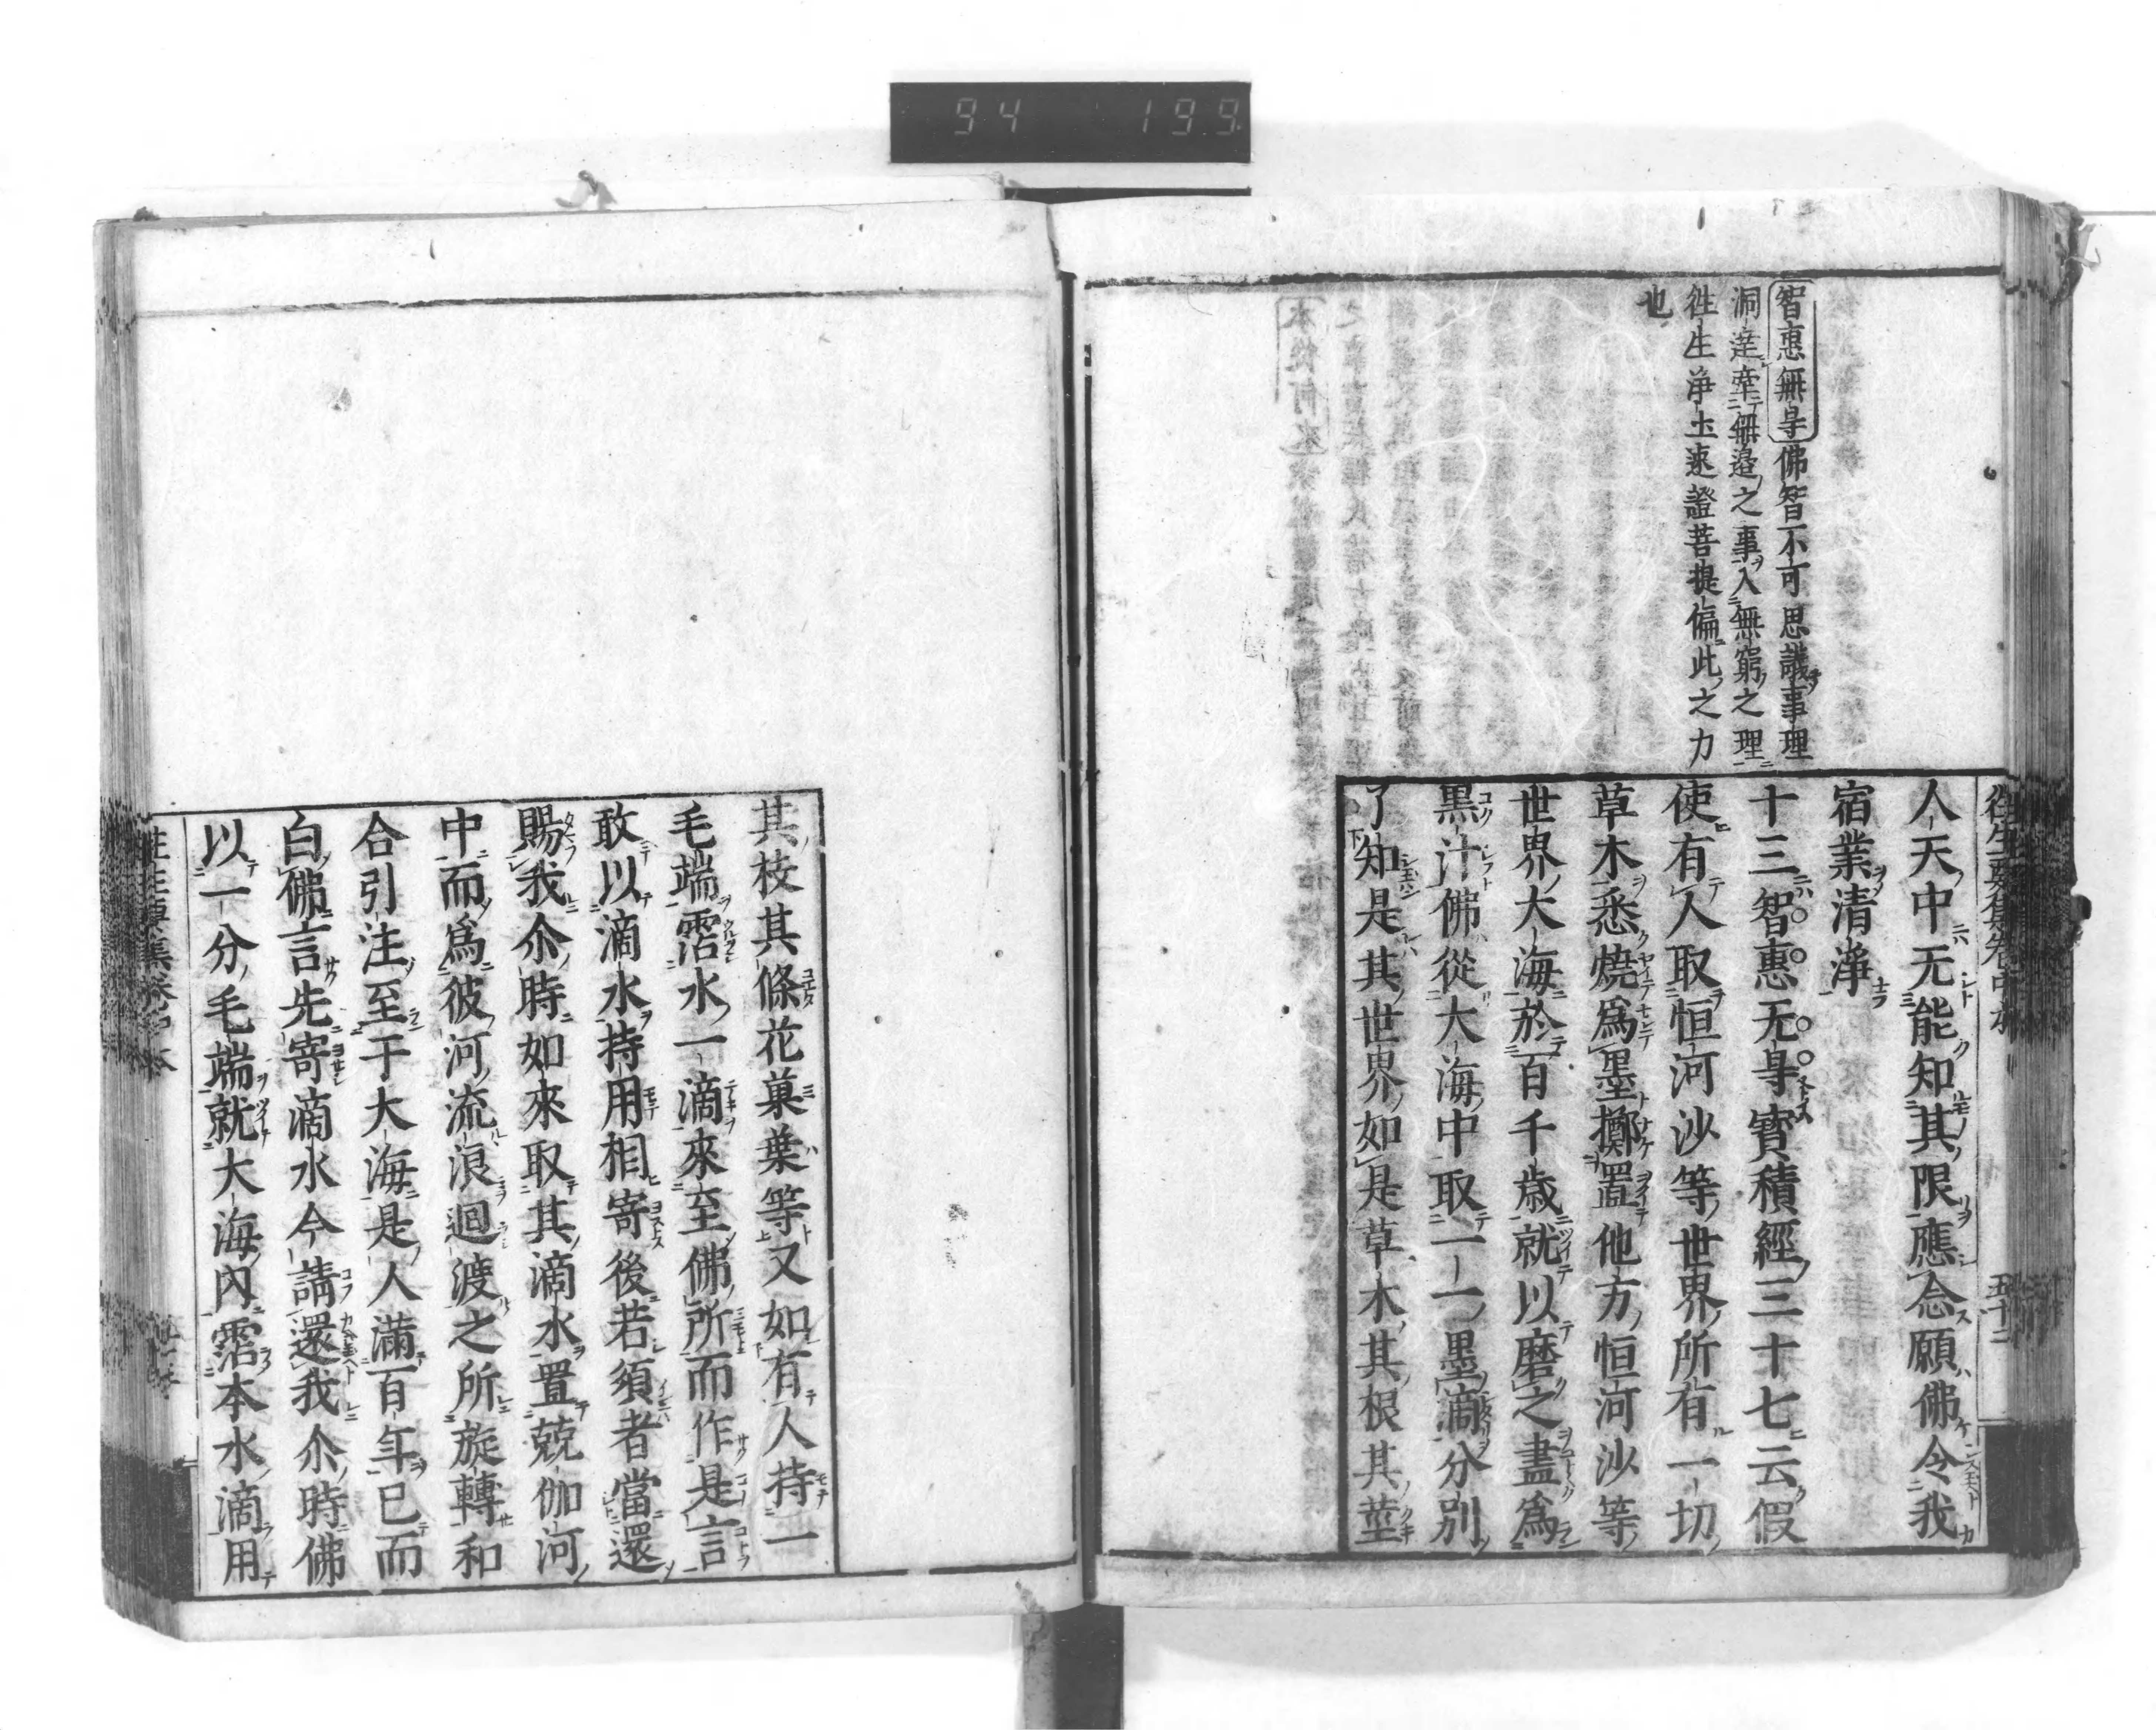 94 199
智惠無㝵佛智不可思議事理
洞達牽無邉之事入無窮之理
徃生淨土速證菩提偏此之力
也
人天中无能知其限應念願佛令我
宿業清淨
十三智惠无㝵寳積經三十七云假
使有人取恒河沙等世界所有一切
草木悉燒爲墨擲置他方恒河沙等
世界大海於百千歳就以磨之盡爲
黒汁佛從大海中取一一墨滴分別
了知是其世界如是草木其根其莖
其枝其條花菓葉等又如有人持一
毛端霑水一滴來至佛所而作是言
敢以滴水持用相寄後若須者當還
賜我尒時如來取其滴水置兢伽河
中而爲彼河流浪迴澓之所旋轉和
合引注至于大海是人滿百年已而
白佛言先寄滴水今請還我尒時佛
以一分毛端就大海內霑本水滴用